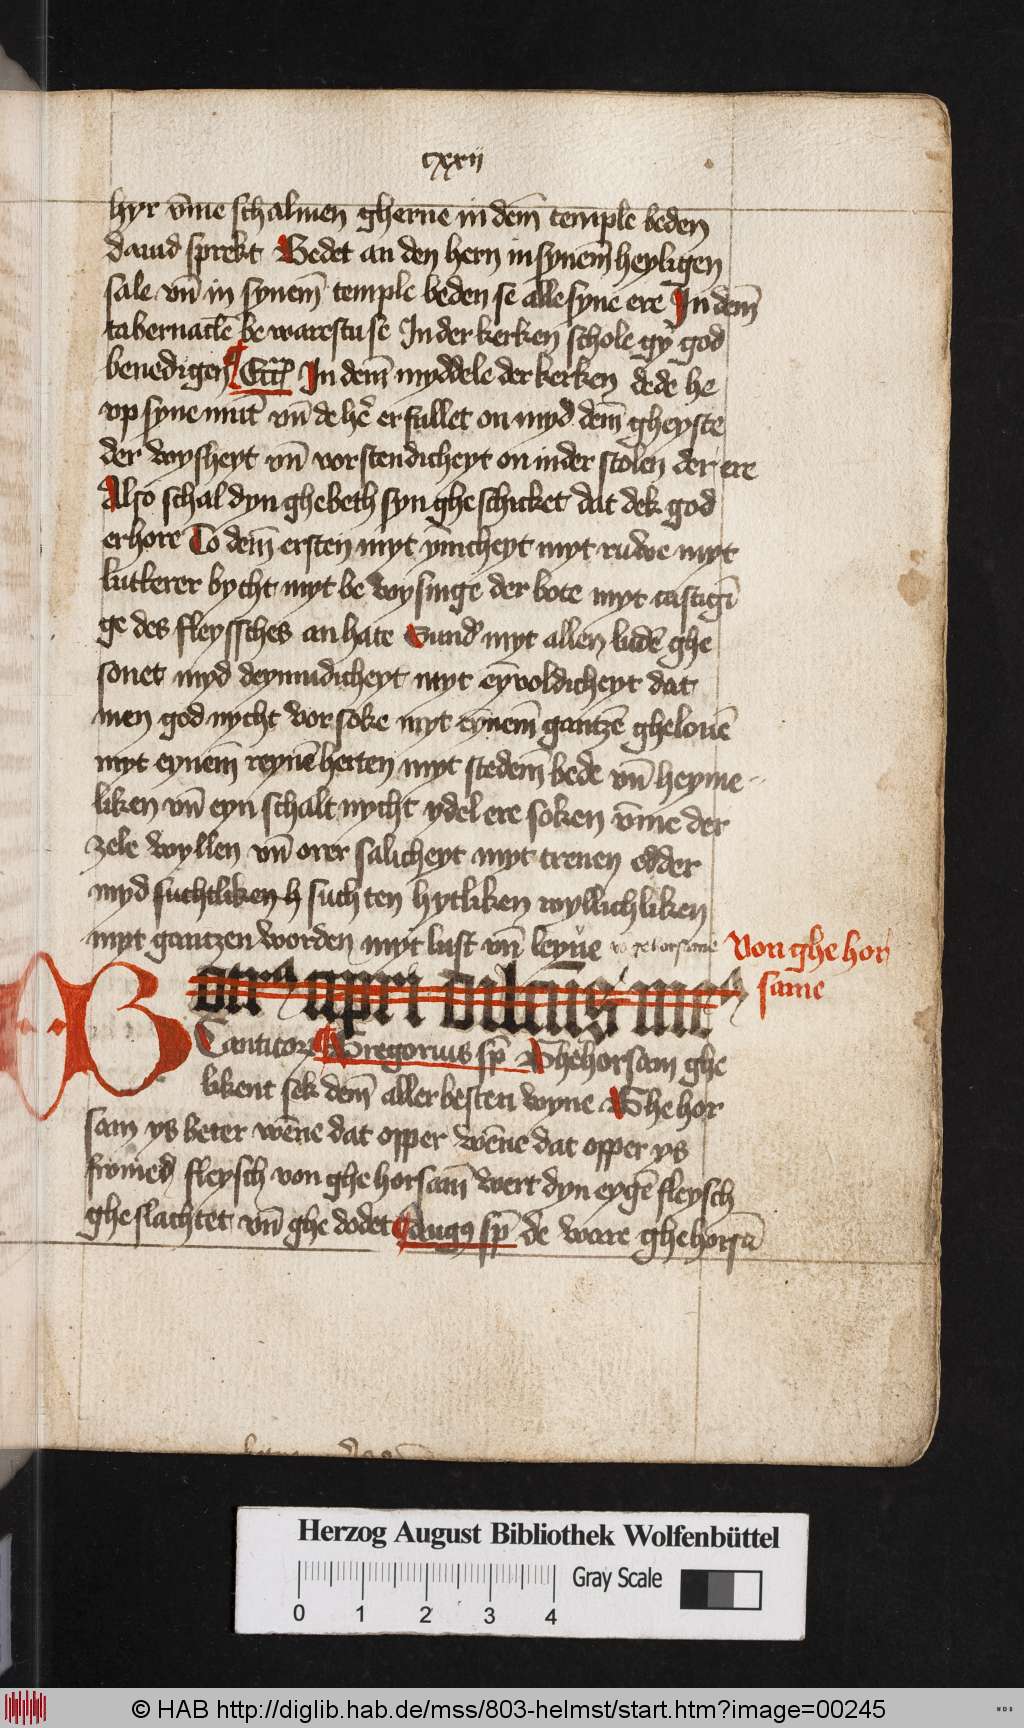 cxxij
hyr vm̄e schalmen gherne in dem̄ temple beden
dauid sprekt Bedet an den hern in synem̄ heyligen
sale vn̄ in synem̄ temple beden se alle syne ere In dem̄
tabernacle be warestu se In der kerken schole gy god
benedigen In dem̄ myddele der kerken dede he
vp syne mūt vn̄ de he er fullet on myd dem̄ gheyste
der wysheyt vn̄ vorstendicheyt on in der stolen der ere
Also schal dyn ghebeth syn ghe schicket dat dek god
erhore To dem̄ ersten myt ynicheyt myt ruwe myt
lutterer bycht myt be wysinge der bote myt castigī
ge des fleyssches an hate sund myt allen ludē ghe
sonet myd deymudicheyt myt eyvoldicheyt dat
men god nycht vor soke myt eynem̄ gantzē ghelouē
myt eynem̄ reynē herten myt stedem̄ bede vn̄ heyme
liken vn̄ eyn schalt nycht ydel ere soken vm̄e der
zele wyllen vn̄ orer salicheyt myt trenen edder
myd suchtliken h such ten hytliken wyllichliken
myt gantzen worden myt lust vn̄ leyue
Von ghe hor
same
Canticor Gregorius sp̄ Ghehorsam ghe
likent sek dem̄ aller besten wyne Ghe hor
sam ys beter wēne dat opper wēne dat opper ys
fromed fleysch von ghe horsam̄ wert dyn eygē fleysch
ghe slachtet vn̄ ghe dodet augꝰ sp̄ de ware ghehorsā
Herzog August Bibliothek Wolfenbüttel
Gray Scale
0 1 2 3 4
© HAB http://diglib.hab.de/mss/803-helmst/start.htm?image=00245